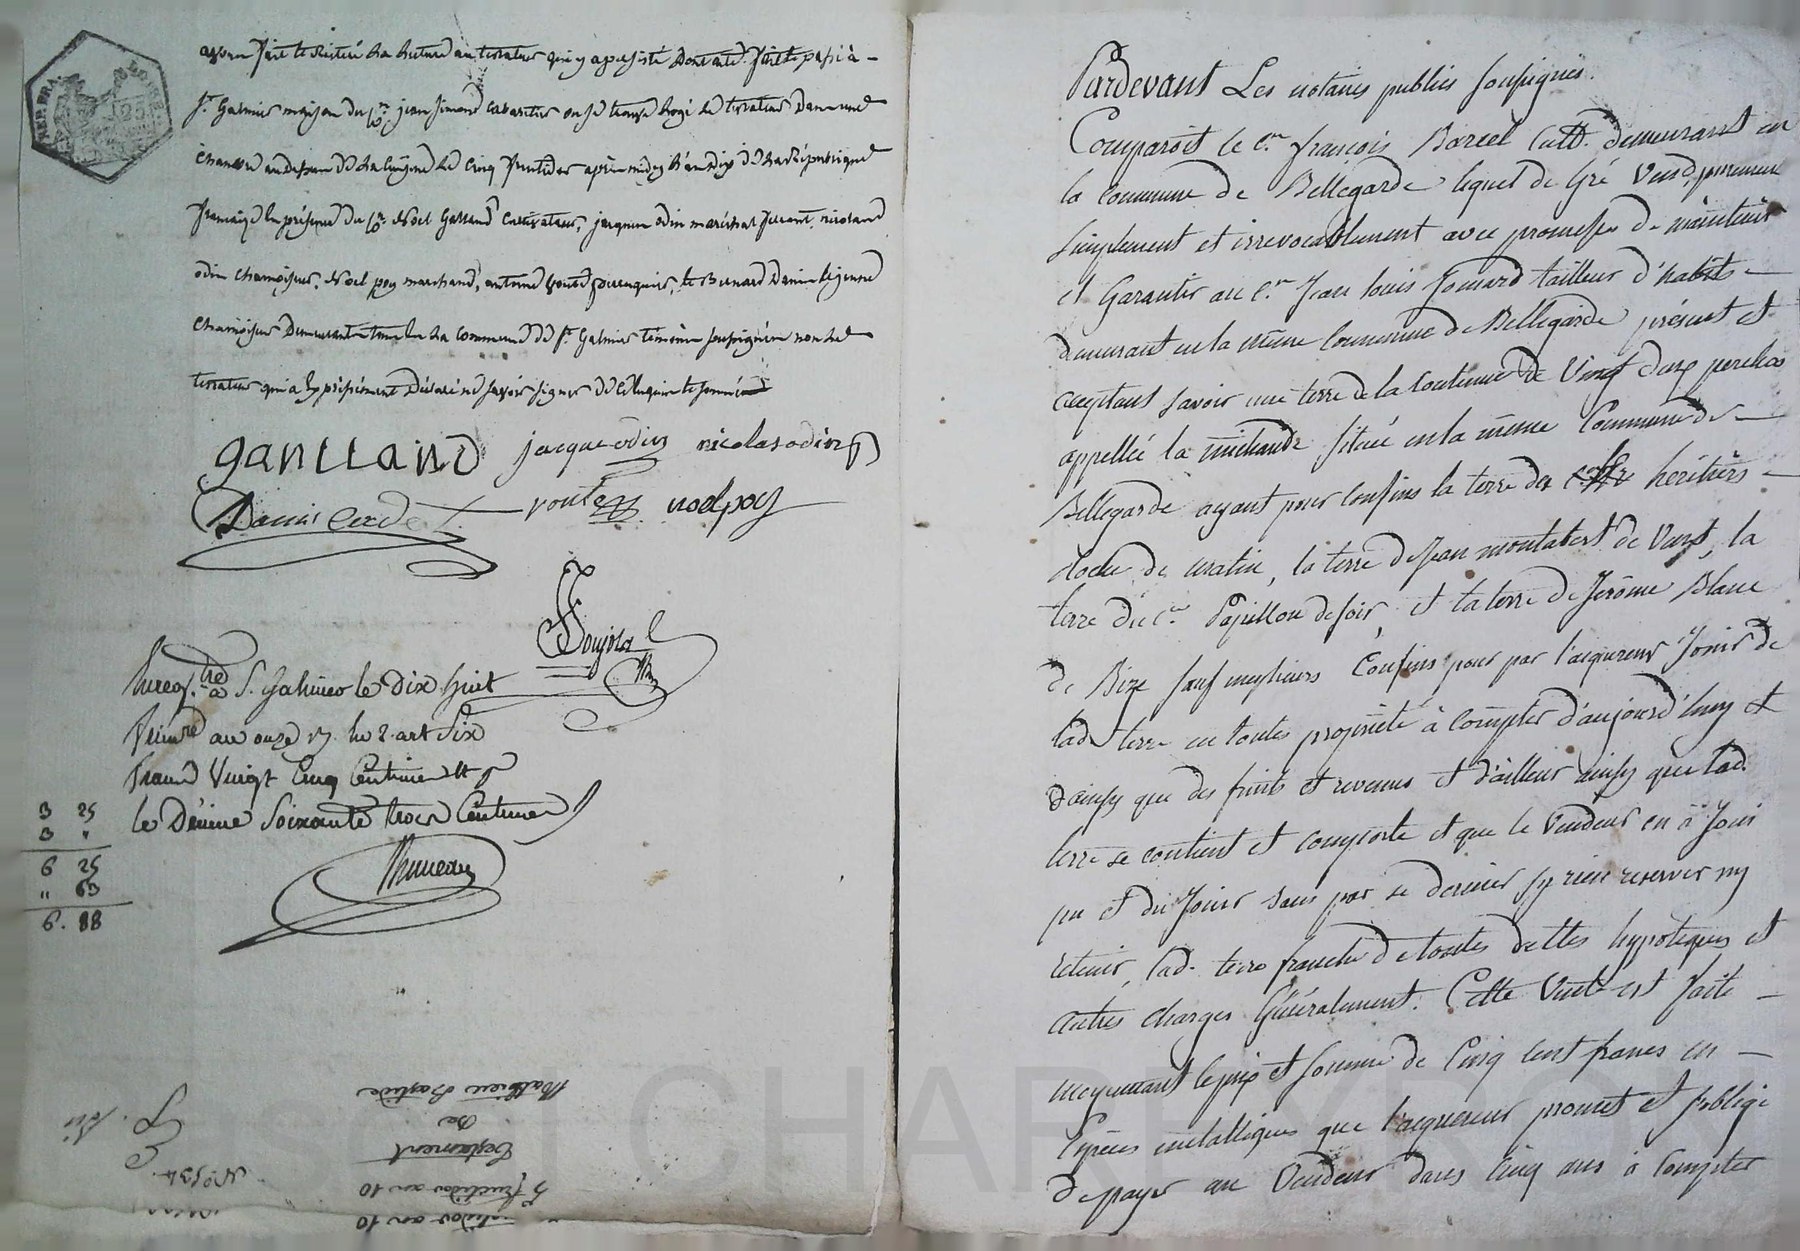 avons fait et réitéré la lecture au testateur qui y a persisté dont acte fait et passé à
St. Galmier maison du Cen. jean simond cabaretier où se trouve logé le testateur dans une
chambre au dessus de la cuizine le cinq fructidor après midy l'an dix de la République
française en présence du Cen. Noel Galland cultivateur, jacques odin maréchal ferrant, nicolas
odin chamoiseur, Noel poy marchand, antoine perruquier, et Bernard Danis le jeune
chamoiseur demeurant tous en la commune de St. Galmier témoins soussignés non le
testateur qui a déclaré ne savoir signer de ce enquis et sommé
gantland jacque odin nicolas odin
Danis cadet noel poy
Enregtré à St. Galmier le dix huit
an onze
francs Vingt Cinq Centimes
le Décime Soixante trois Centimes
3 25
3 "
6 25
" 63
6. 88
Mathieu Bastide
De
Testament
5 fructidor an 10
an 10
Pardevant Les notaires publics soussignés.
Comparoit le Cen. françois Barcel Cultr. demeurant en
la commune de Bellegarde lequel de Gré Vend purement
simplement et irrevocablement avec promesse de maintenir
et Garantir au Cen. Jean louis Jomard tailleur d'habits
demeurant en la même Commune de Bellegarde présent et
acceptant savoir une terre de la Contenue de Vingt deux perches
appellée la michaude située en la même Commune de
Bellegarde ayant pour Confins la terre des héritiers
de matin, la terre de Jean montabert de Vent, la
terre du Cen. Papillon de soir, et la terre de Jerôme Blanc
de Bize sauf meilleurs Confins pour par l'acquereur Jouir de
lad. terre en toutes propriété à Compter d'aujourd'huy et
ainsy que des fruits et revenus et d'ailleur ainsy que lad.
terre se contient et comporte et que le Vendeur en a Joui
pu et du Jouir sans par ce dernier sy rien reserver ny
retenir, lad. terre franche de toutes dettes hypoteques et
autres charges Généralement. Cette Vente est faite
moyennant le prix et somme de Cinq Cent francs en
Espèces métalliques que l'acquereur promet et s'oblige
de payer au Vendeur dans Cinq ans à Compter